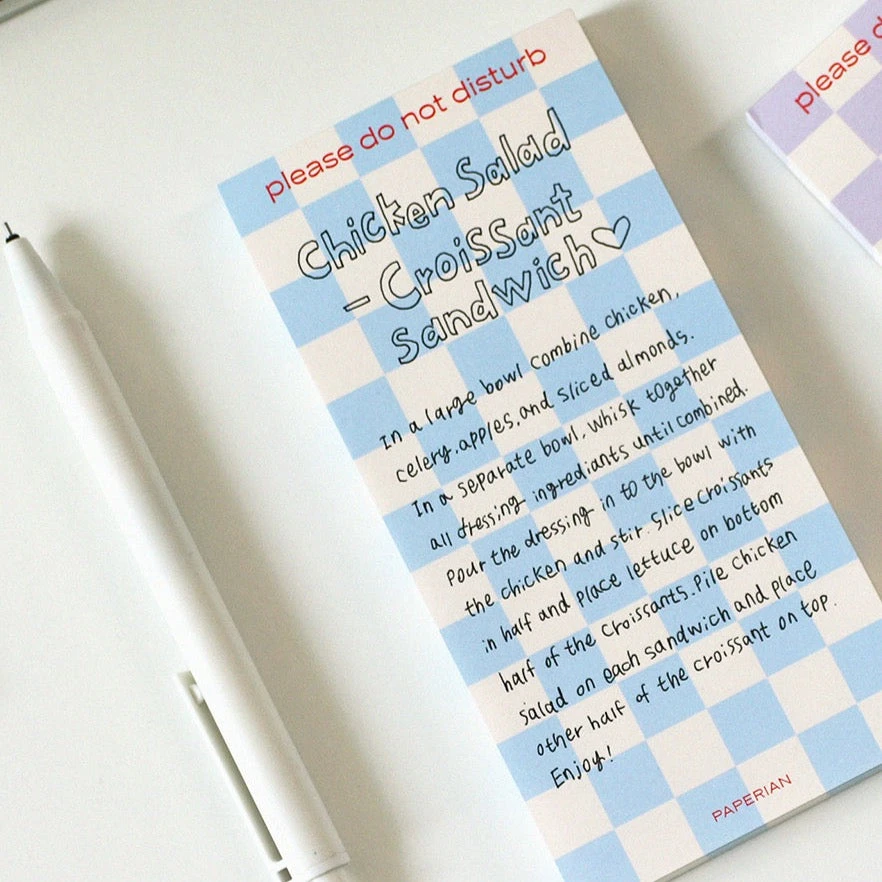 please do not disturb
Chicken Salad
- Croissant
Sandwich♡
In a large bowl combine chicken,
celery, apples, and sliced almonds.
In a separate bowl, whisk together
all dressing ingrediants until combined.
Pour the dressing in to the bowl with
the chicken and stir. Slice Croissants
in half and place lettuce on bottom
half of the Croissants. Pile Chicken
salad on each sandwich and place
other half of the croissant on top.
Enjoy!
PAPERIAN
please d